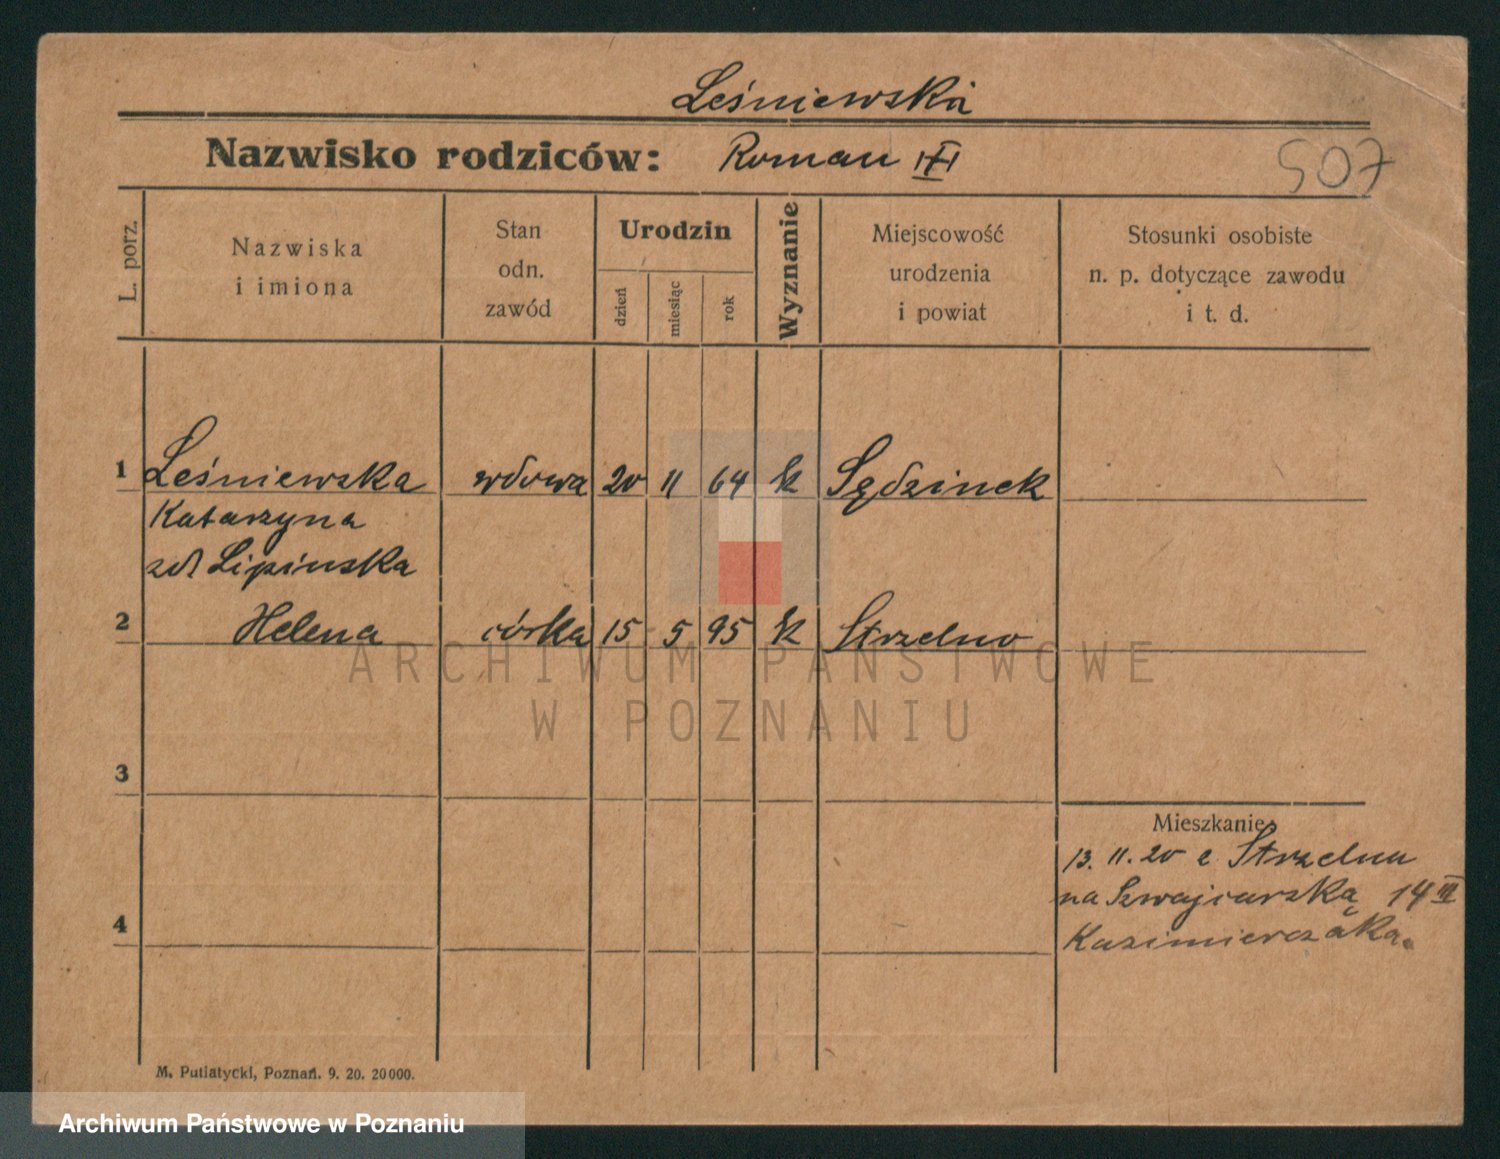 Leśniewska
Nazwisko rodziców: Roman
507
L. porz.
Nazwiska
i imiona
Stan
odn.
zawód
Urodzin
dzień
miesiąc
rok
Wyznanie
Miejscowość
urodzenia
i powiat
Stosunki osobiste
n. p. dotyczące zawodu
i t. d.
1 Leśniewska wdowa 20 11 64 k Sędzinek
Katarzyna
zd Lipinska
2 Helena córka 15 5 95 k Strzelno
3
4
Mieszkanie
13. 11. 20 z Strzelna
na Szwajcarską 14 III
Kazimierczaka.
M. Putiatycki, Poznań. 9. 20. 20000.
ARCHIWUM PAŃSTWOWE
W POZNANIU
Archiwum Państwowe w Poznaniu